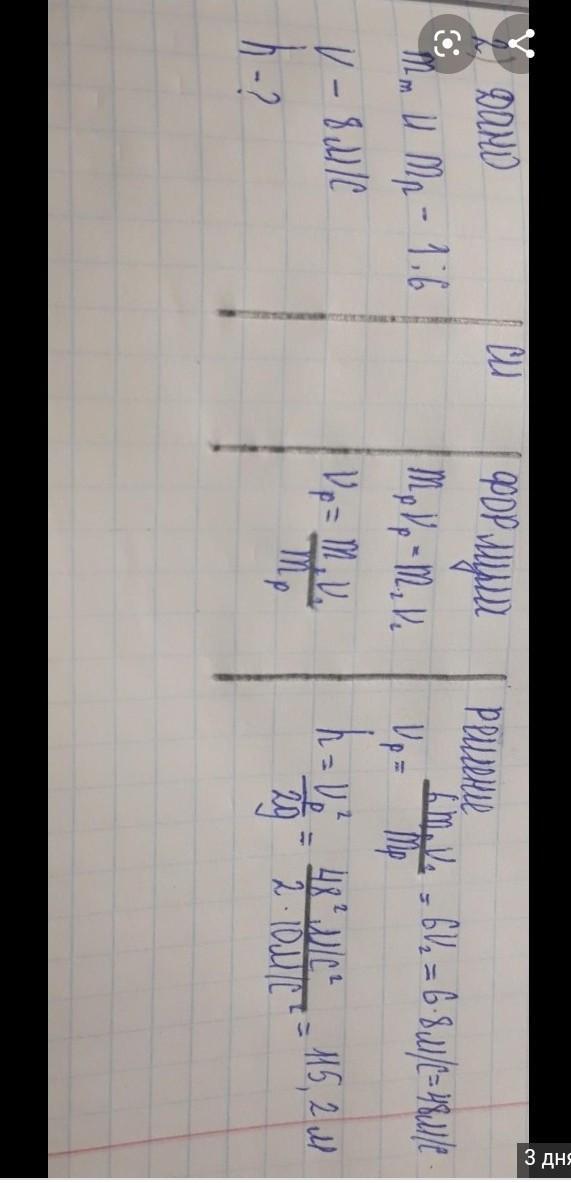 2. Дано
mт и mр - 1:6
V - 8 м/с
h - ?
СИ
Формулы
mрVр = mгVг
Vр = mгVг / mр
Решение
Vр = 6mгVг / mр = 6Vг = 6·8м/с = 48м/с.
h = Vр² / 2g = 48² м/с² / 2·10м/с² = 115,2 м
3 дня